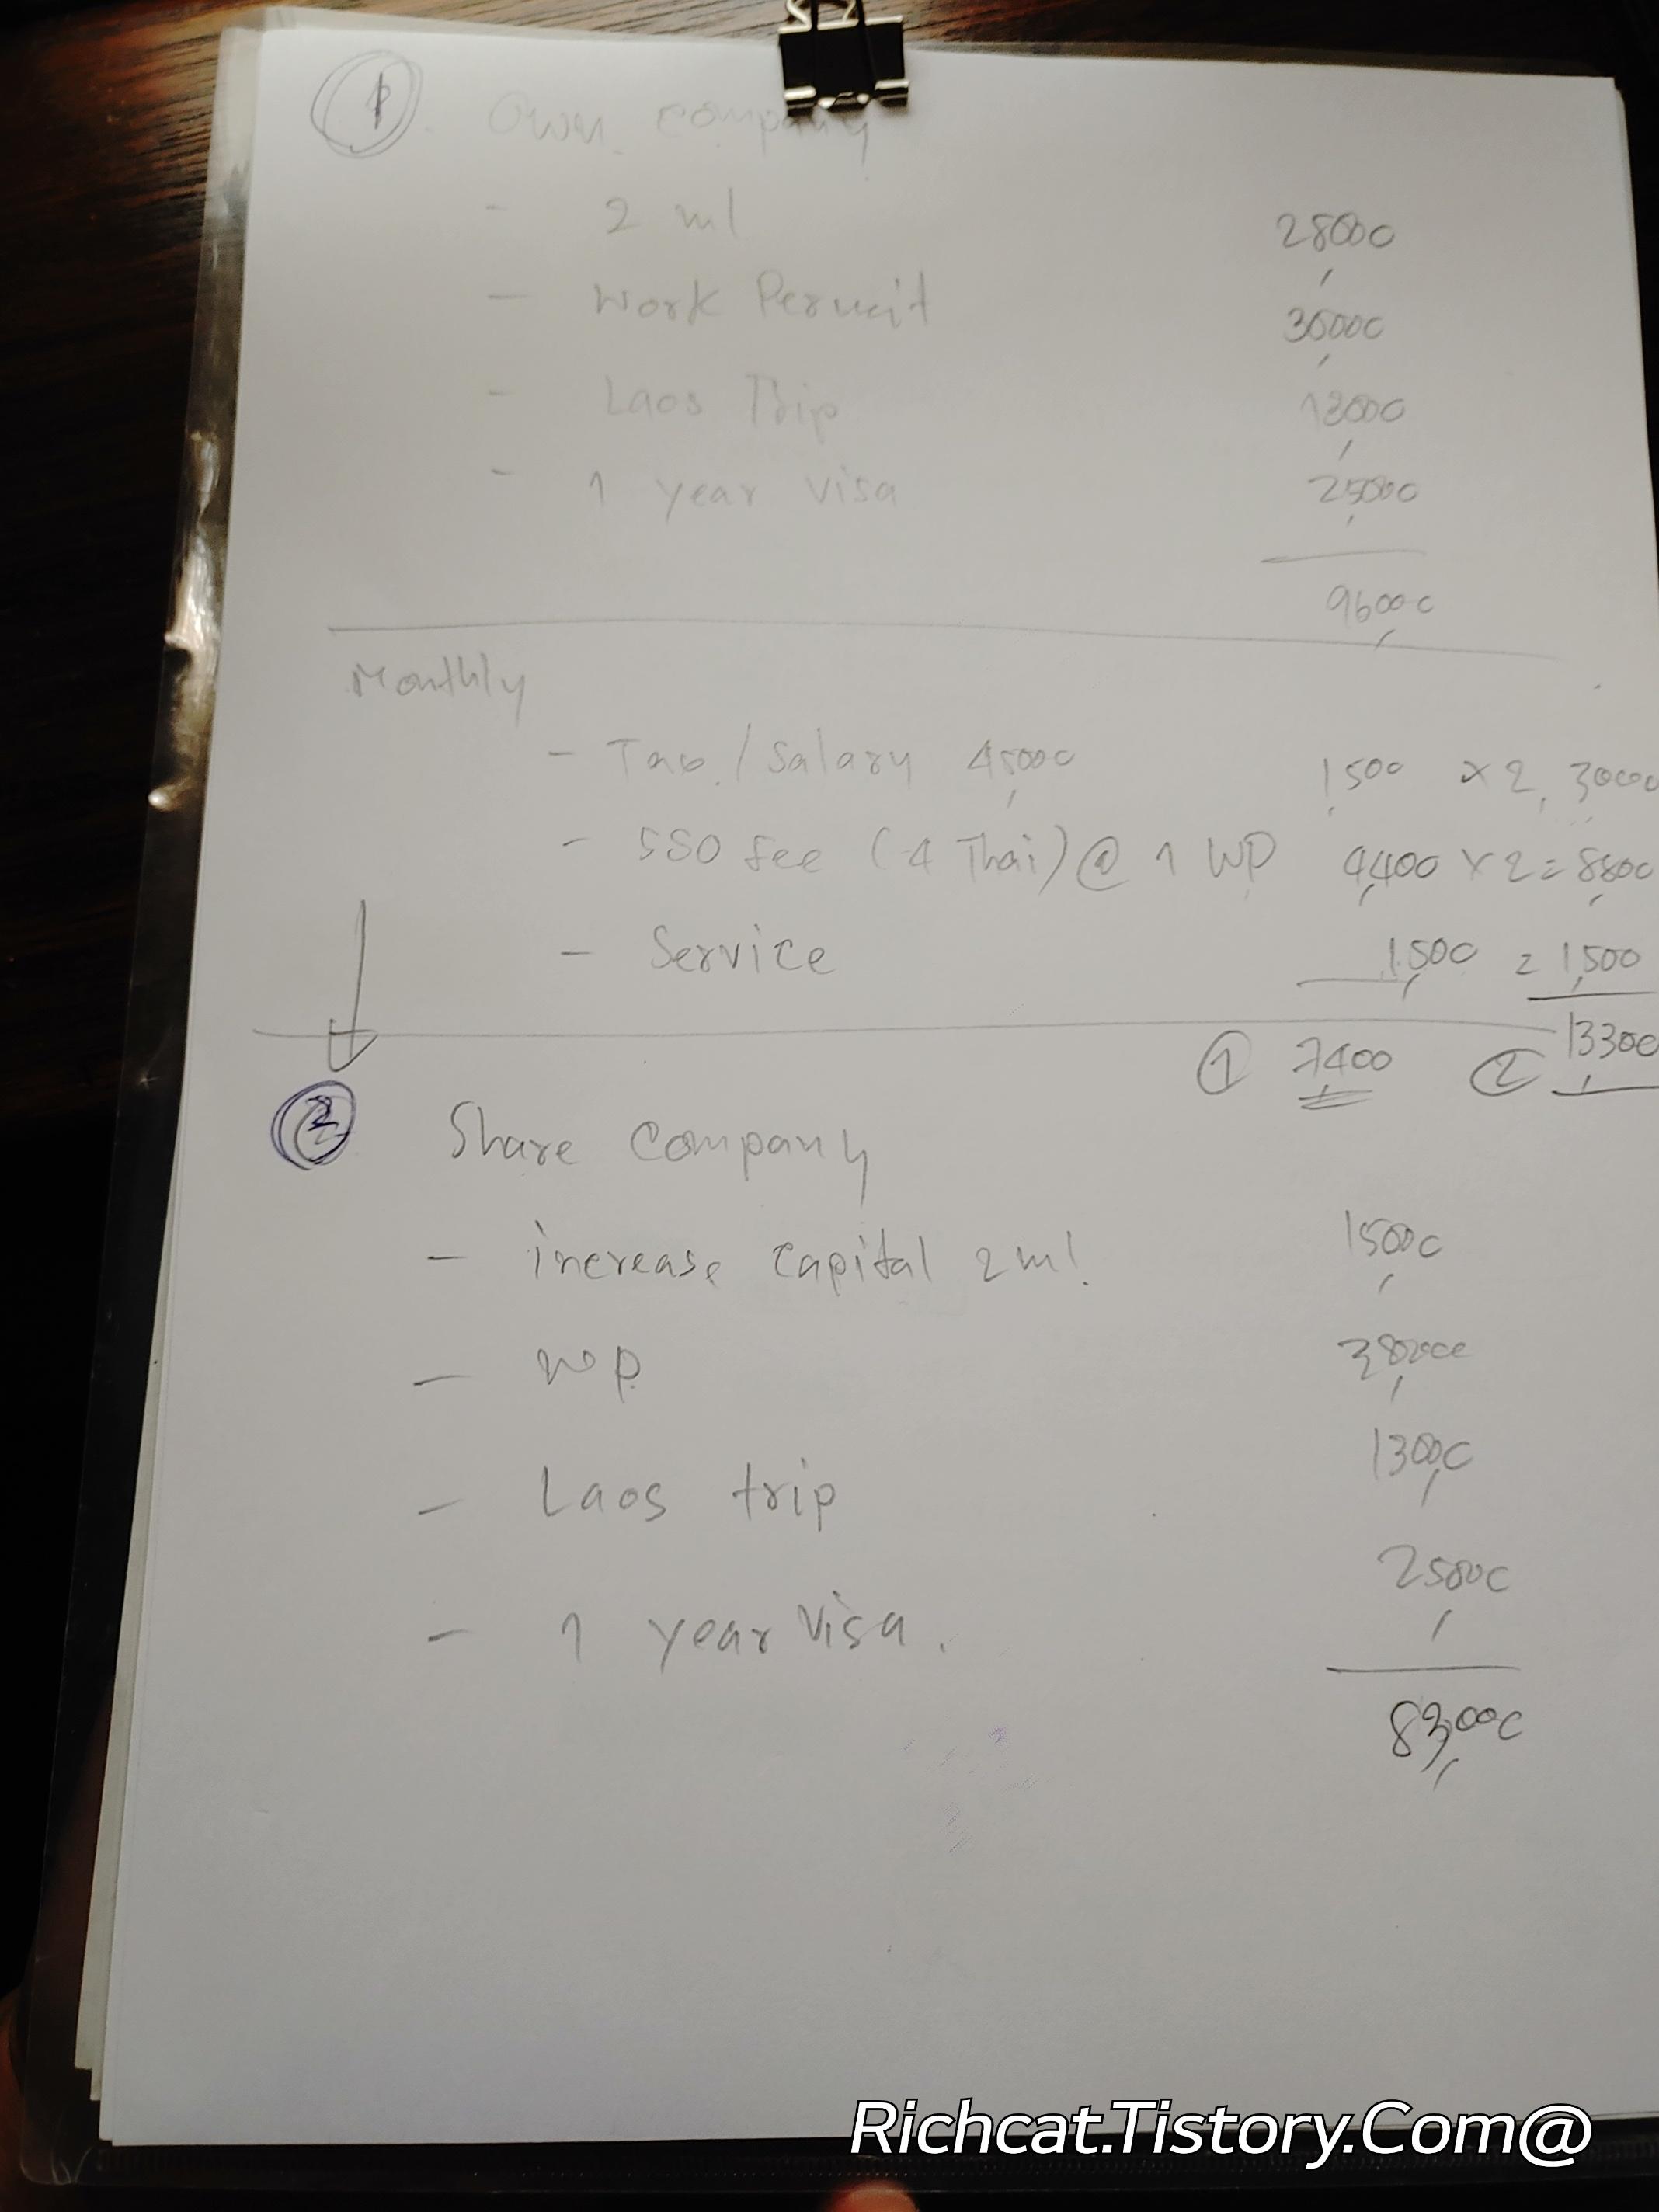 1. Own company
- 2 ml 28000
- Work Permit 30000
- Laos Trip 13000
- 1 year visa 25000
96000
Monthly
- Tax/Salary 45000 1,500 x 2, 3000
- SSO fee (4 Thai) @ 1 WP 4,400 x 2 = 8,800
- Service 1,500 = 1,500
① 7400 ② 13300
② Share Company
- increase capital 2 ml. 15000
- WP 30000
- Laos trip 13000
- 1 year visa. 25000
83,000
Richcat.Tistory.Com@